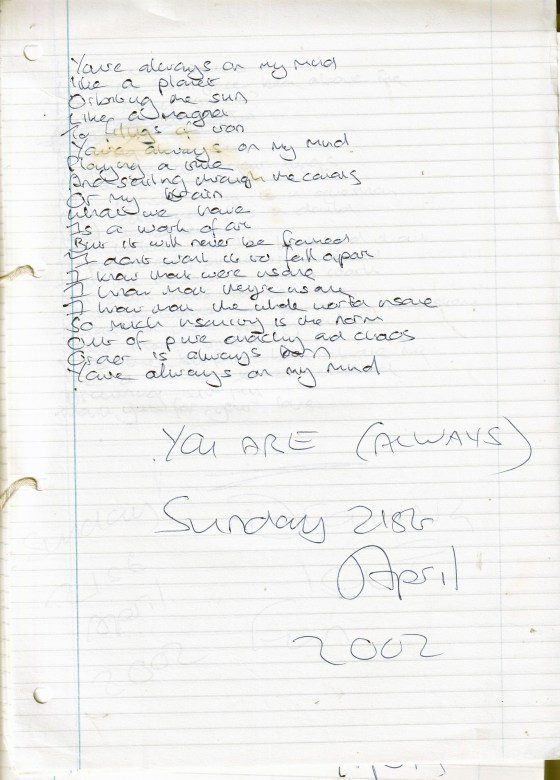 Youre always on my mind
like a planet
Orbiting the sun
Like a magnet
To filings of iron
Youre always on my mind
Playing a
And sailing through the canals
Of my brain
What we have
Is a work of art
But it will never be framed
I dont want it to fall apart
I know that were insane
I know that theyre insane
I know that the whole world insane
So much insanity is the norm
Out of pure anarchy and chaos
Order is always born
Youre always on my mind
YOU ARE (ALWAYS)
Sunday 21st
April
2002